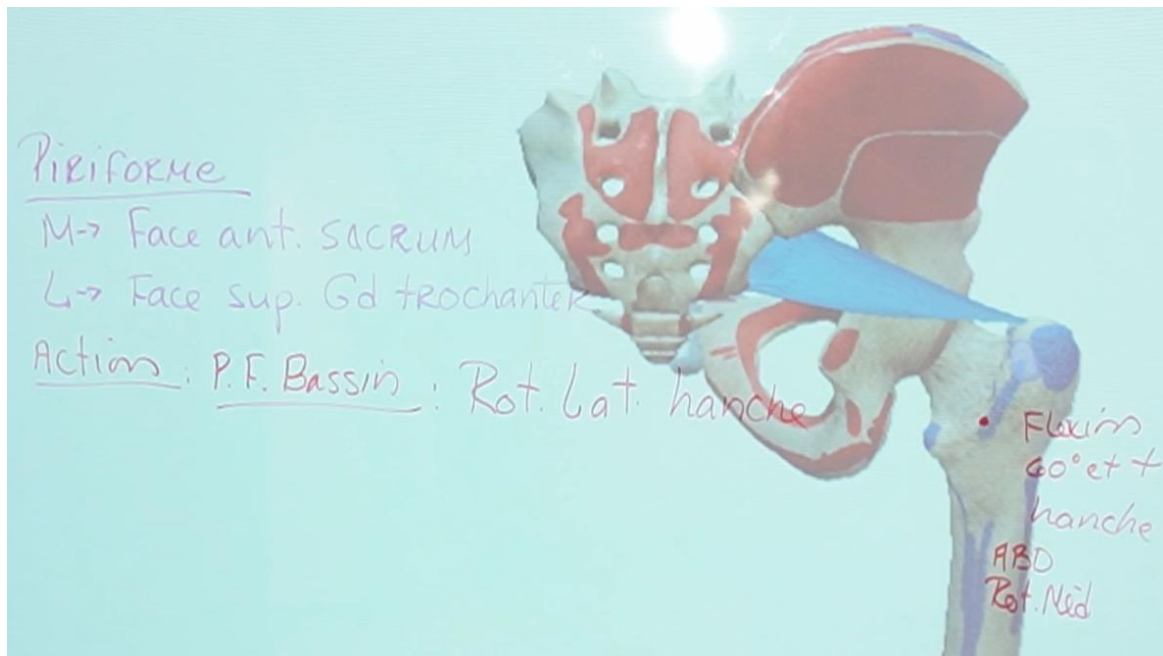 Piriforme
M-> Face ant. SACRUM
L-> Face sup. Gd trochanter
Action : P.F. Bassin : Rot. Lat. hanche
Flexion
60° et +
hanche
ABD
Rot. Méd